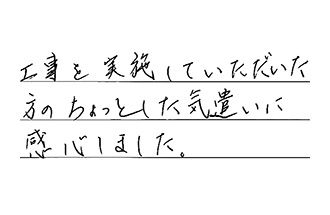 工事を実施していただいた
方のちょっとした気遣いに
感心しました。